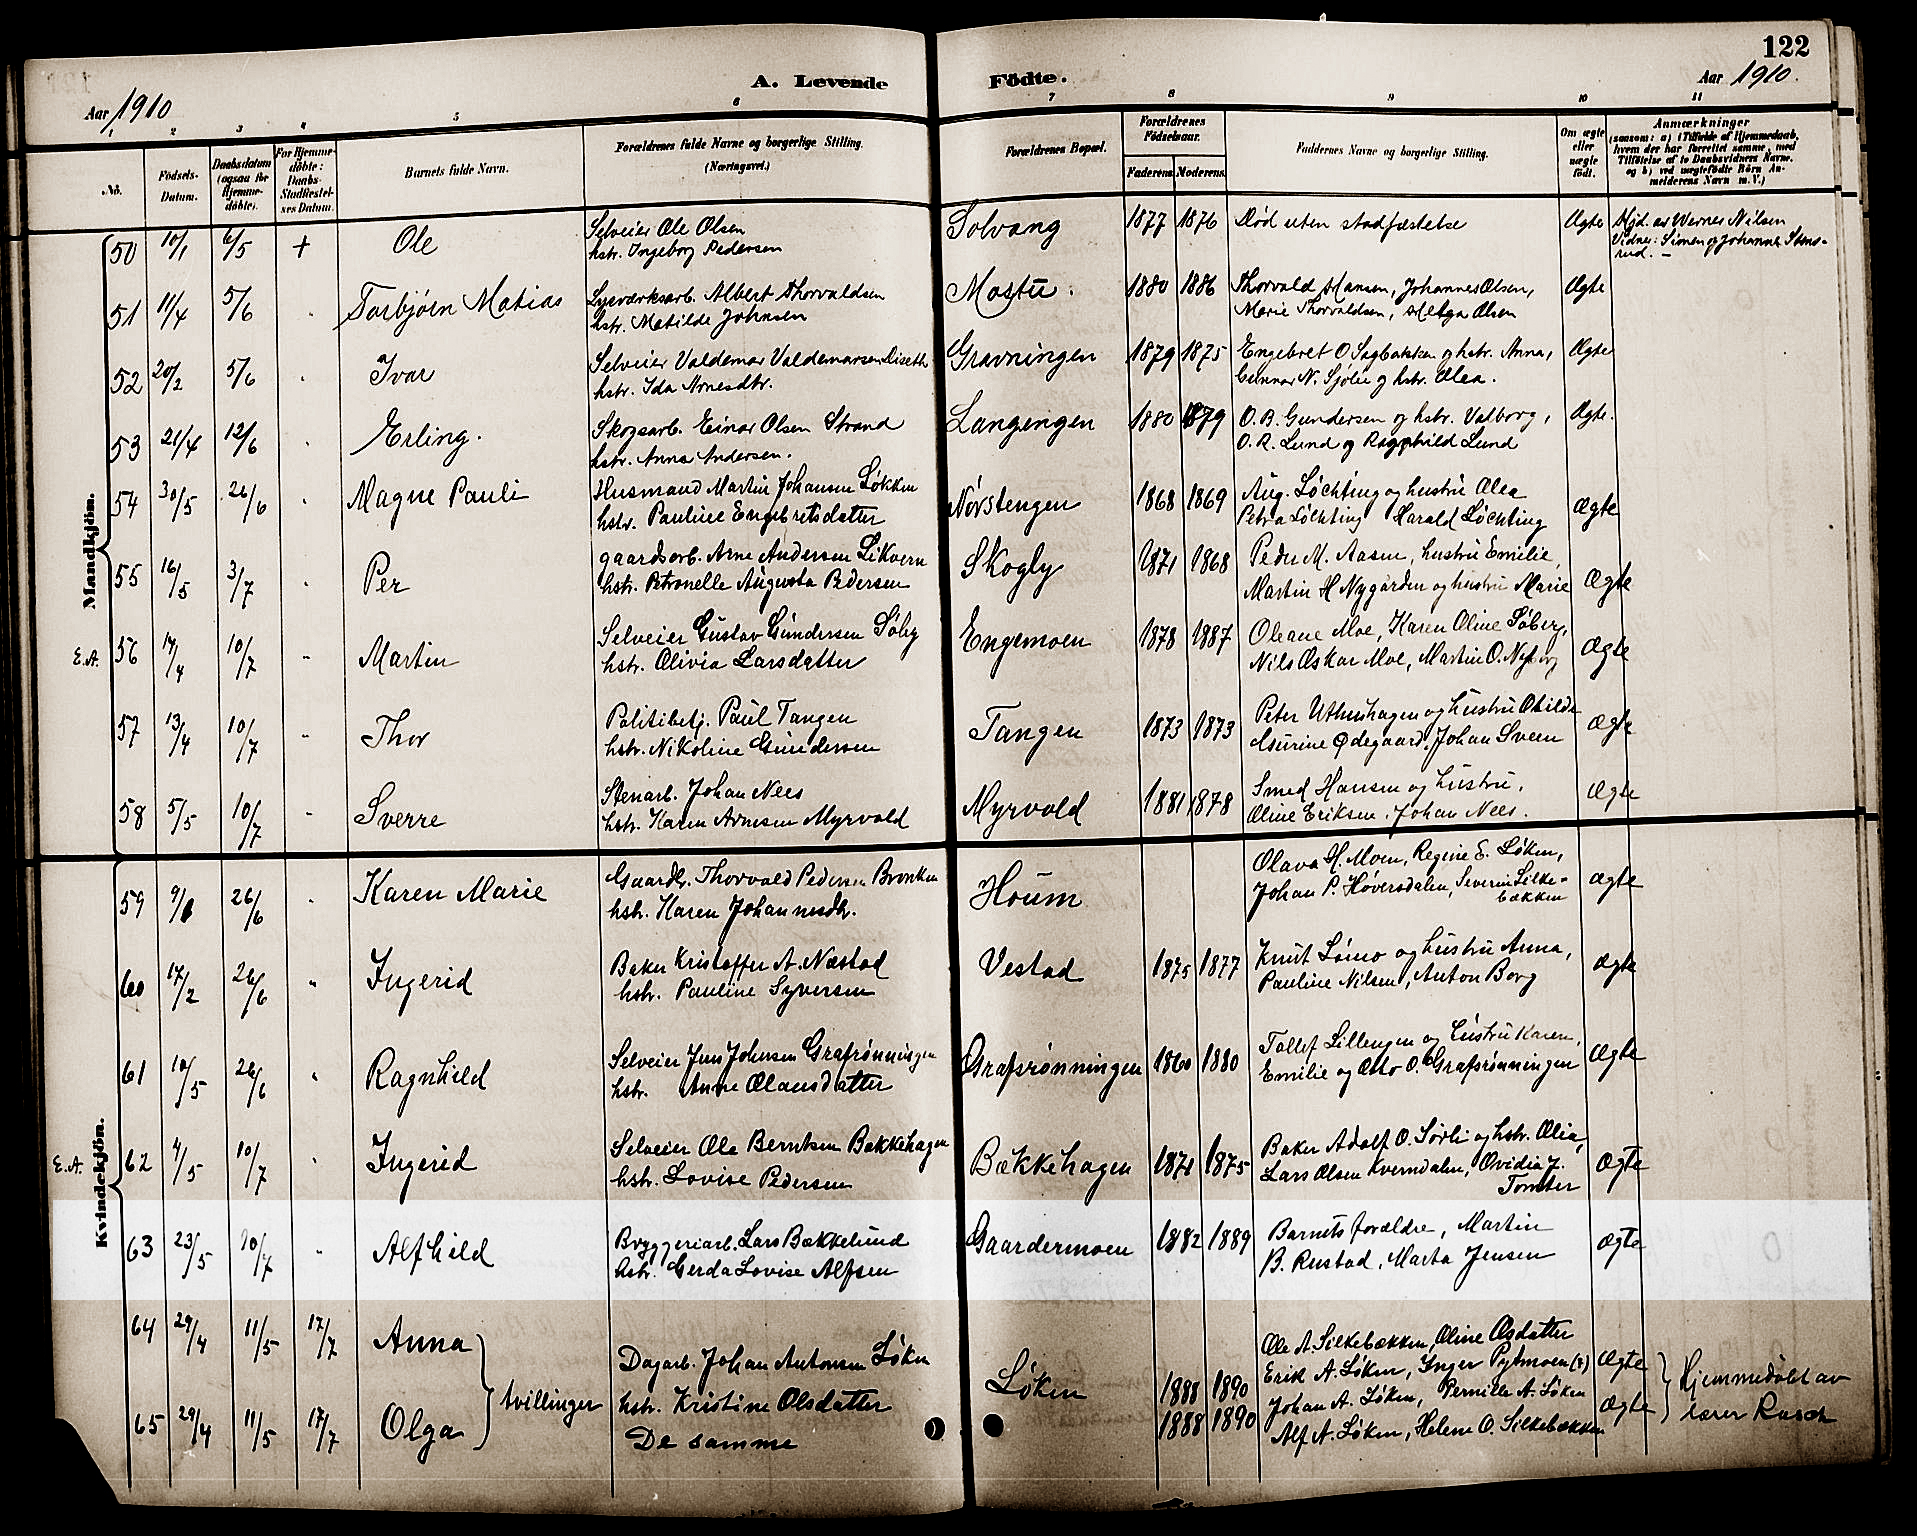 122
A. Levende Födte.
Aar 1910
Aar 1910.
1 2 3 4 5 6 7 8 9 10 11
No. Födsels-Datum. Daabsdatum (ogsaa for Hjemme-döbte). For Hjemme-döbte: Daabs-Stadfæstel-ses Datum. Barnets fulde Navn. Forældrenes fulde Navne og borgerlige Stilling. (Næringsvei.) Forældrenes Bopæl. Forældrenes Födselsaar. Faderens Moderens Faddernes Navne og borgerlige Stilling. Om ægte eller uægte födt. Anmærkninger (saasom: a) i Tilfælde af Hjemmedaab, hvem der har forrettet samme, med Tilföielse af to Daabsvidners Navne, og b) ved uægtefödte Börn An-melderens Navn m. V.)
Mandkjön.
50 10/1 6/5 + Ole Selveier Ole Olsen Solvang 1877 1876 Död uten stadfæstelse Ægte Hjd. av Wernes Nilsen
hstr. Ingeborg Pedersen Vidner: Simen og Johanne Stens-
rud. –
51 11/4 5/6 Torbjörn Matias Lysværksarb. Albert Thorvaldsen Mostu. 1880 1886 Thorvald Hansen, Johannes Olsen, Ægte
hstr. Matilde Johnsen Marie Thorvaldsen, Helga Olsen
52 20/2 5/6 Ivar Selveier Valdemar Valdemarsen Diseth Gravningen 1879 1875 Engebret O Sagbakken og hstr. Anna, Ægte
hstr. Ida Arnesdtr. Gunnar N. Sjölie og hstr. Olea.
53 21/4 12/6 Erling. Skogsarb. Einar Olsen Strand Langengen 1880 1879 O. B. Gundersen og hstr. Valborg, Ægte.
hstr. Anna Andersen. O. R. Lund og Ragnhild Lund
54 30/5 26/6 Magne Pauli Husmand Martin Johansen Løkken Nörstengen 1868 1869 Aug. Löchting og hustru Olea Ægte
hstr. Pauline Engebretsdatter Petra Löchting Harald Löchting
55 16/5 3/7 Per gaardsarb. Arne Andersen Likvern Skogly 1871 1868 Peder M. Aasen, hustru Emilie, Ægte
hstr. Petronelle Augusta Pedersen Martin H Nygården og hustru Marie
E.A. 56 17/4 10/7 Martin Selveier Gustav Gundersen Söby Engemoen 1878 1887 Oleane Moe, Karen Oline Søberg, Ægte
hstr. Olivia Larsdatter Nils Oskar Moe, Martin O. Nyborg
57 13/4 10/7 Thor Politibetj. Paul Tangen Tangen 1873 1873 Peter Uthushagen og hustru Ægte
hstr. Nikoline Gundersen Ødegaard, Johan Sveen
58 5/5 10/7 Sverre Stenarb. Johan Nees Myrvold 1881 1878 Smed Hansen og hustru, Ægte
hstr. Karen Arnesen Myrvold Oline Eriksen, Johan Nees.
Kvindekjön.
59 26/6 Karen Marie Gaardbr. Thorvald Pedersen Bronken Houm Olava H. Moen, Regine E. Løken, Ægte
hstr. Karen Johannesdtr. Johan P. Höversdalen, Severin Silke-
bækken
60 17/2 26/6 Ingerid Baker Kristoffer A. Næstad Vestad 1875 1877 Knut Lömo og hustru Anna, Ægte
hstr. Pauline Syversen Pauline Nilsen, Anton Borg
61 10/5 26/6 Ragnhild Selveier Jens Johnsen Grafsrønningen Grafsrønningen 1860 1880 Tollef Lillengen og hustru Karen, Ægte
hstr. Anne Olausdatter Emilie og Otto O. Grafsrønningen
E.A. 62 4/5 10/7 Ingerid Selveier Ole Berntsen Bækkehagen Bækkehagen 1871 1875 Baker Adolf O. Sörli og hstr. Olia, Ægte
hstr. Lovise Pedersen Lars Olsen Kverndalen, Ovidia J.
Tomter
63 23/5 10/7 Alfhild Bryggeriarb. Lars Bækkelund Gaardermoen 1882 1889 Barnets forældre, Martin Ægte
hstr. Gerda Lovise Alfsen B. Rustad, Marta Jensen
64 29/4 11/5 17/7 Anna Dagarb. Johan Antonsen Løken Løken 1888 1890 Ole A. Silkebækken, Oline Olsdatter Ægte Hjemmedöbt av
hstr. Kristine Olsdatter Erik A. Løken, Inger Pytmoen (?) lærer Rasch
65 29/4 11/5 17/7 Olga tvillinger De samme 1888 1890 Johan A. Løken, Pernille A. Løken Ægte
Alf A. Løken, Helene O. Silkebækken